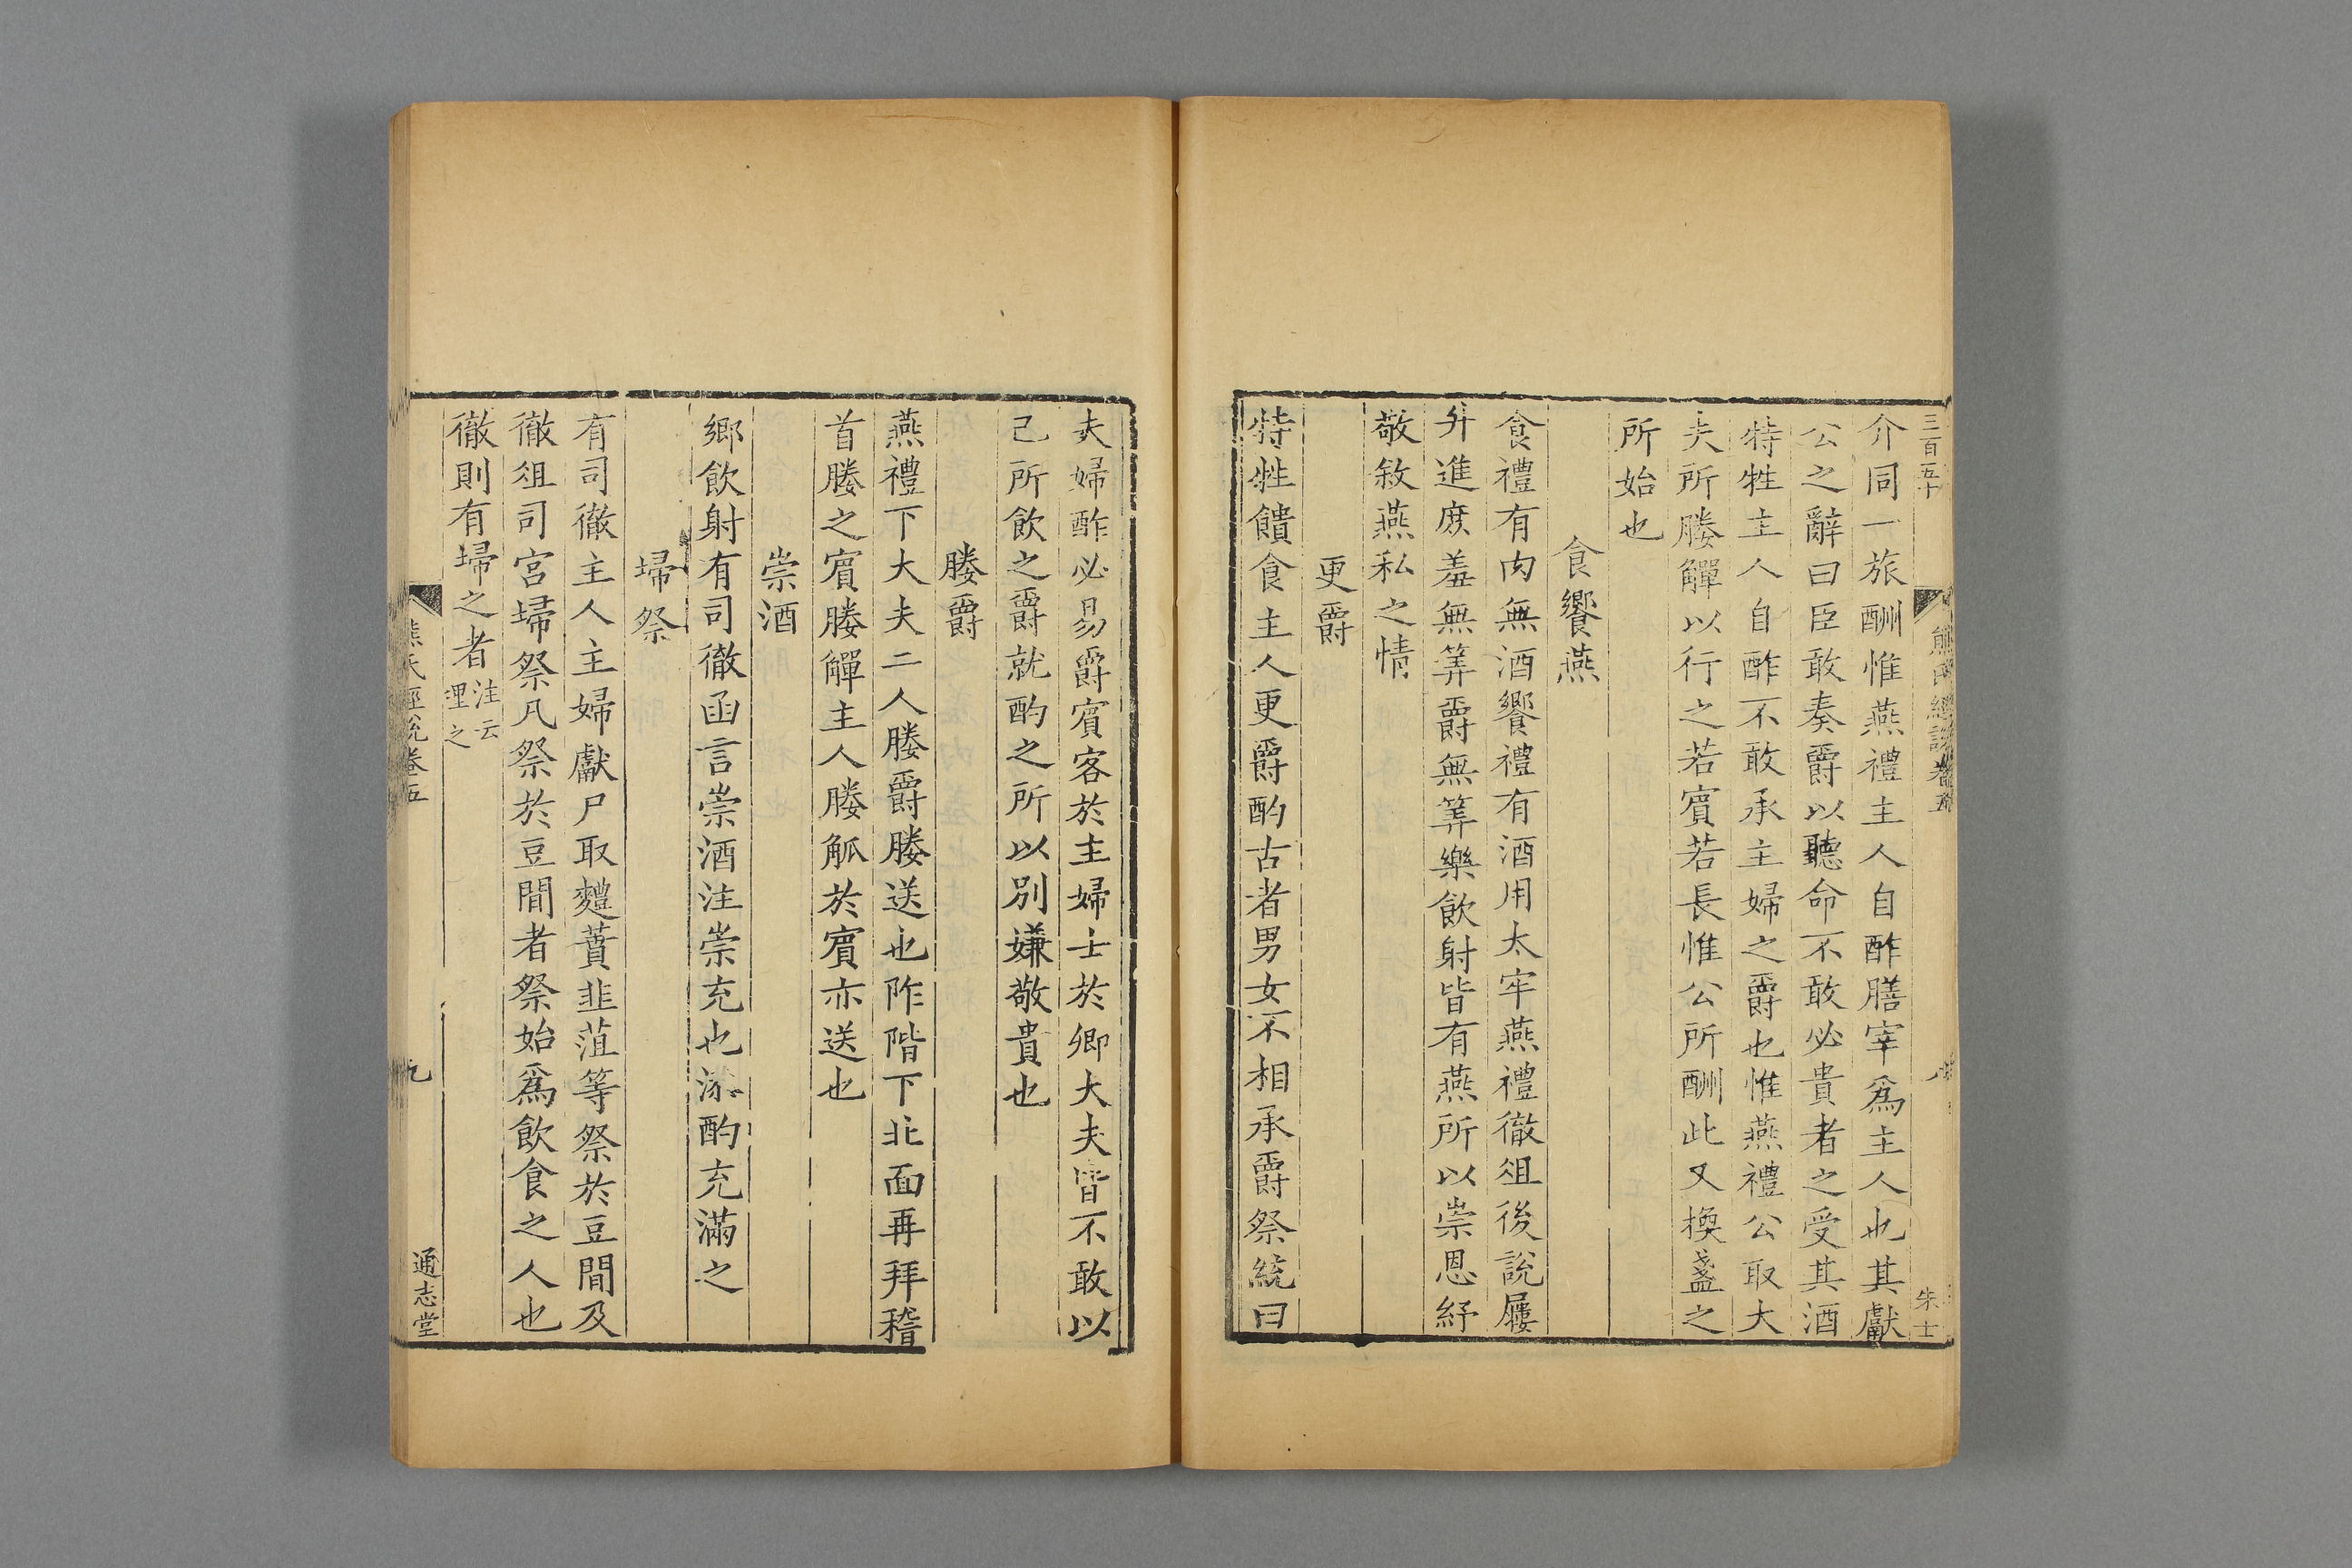 三百五十
熊氏經說卷五
朱士
介同一旅酬惟燕禮主人自酢膳宰爲主人也其獻
公之辭曰臣敢奏爵以聽命不敢必貴者之受其酒
特牲主人自酢不敢承主婦之爵也惟燕禮公取大
夫所媵觶以行之若賓若長惟公所酬此又換盞之
所始也
食饗燕
食禮有肉無酒饗禮有酒用太牢燕禮徹俎後說屨
升進庶羞無筭爵無筭樂飲射皆有燕所以崇恩紓
敬敘燕私之情
更爵
特牲饋食主人更爵酌古者男女不相承爵祭統曰
夫婦酢必易爵賓客於主婦士於卿大夫皆不敢以
己所飲之爵就酌之所以別嫌敬貴也
媵爵
燕禮下大夫二人媵爵媵送也阼階下北面再拜稽
首媵之賓媵觶主人媵觚於賓亦送也
崇酒
鄉飲射有司徹函言崇酒注崇充也添酌充滿之
埽祭
有司徹主人主婦獻尸取麷蕡韭菹等祭於豆閒及
徹俎司宮埽祭凡祭於豆閒者祭始爲飲食之人也
徹則有埽之者注云埋之
熊氏經說卷五
九
通志堂